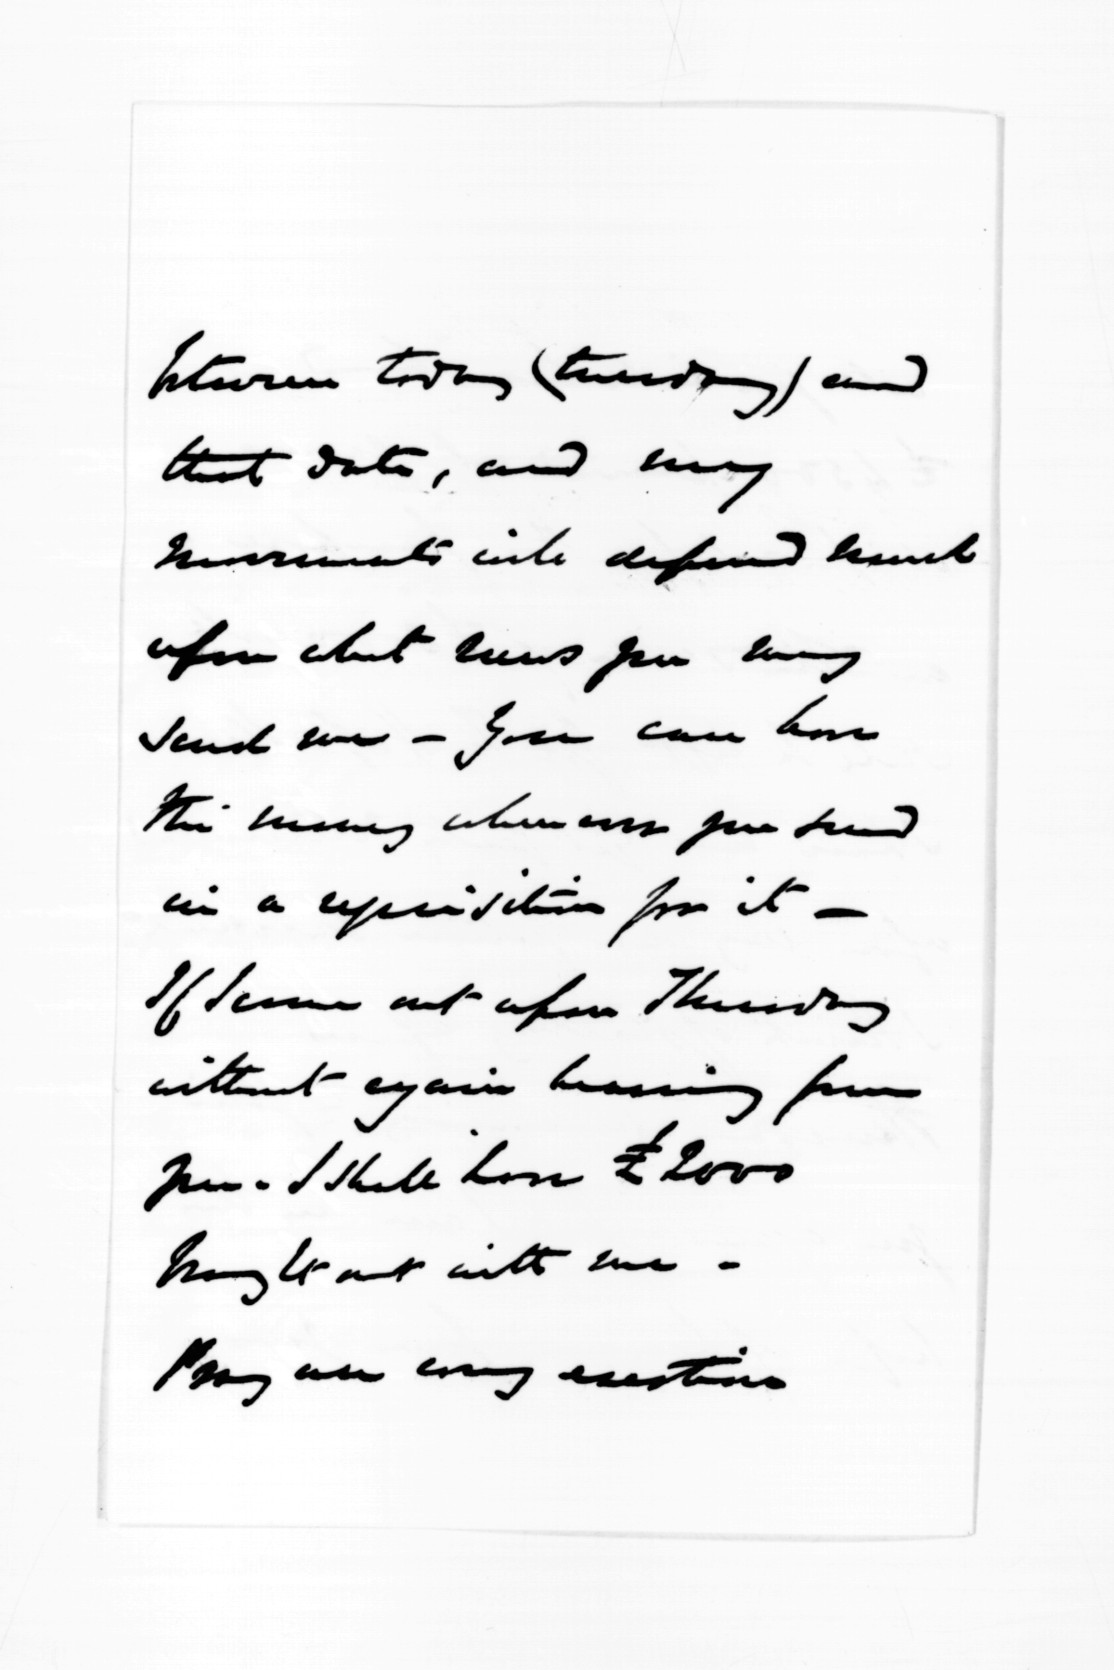 between today (tuesday) and
that date, and my
movements will depend much
upon what news you may
send me – You can have
the money whenever you send
in a requisition for it –
If I come out upon Thursday
without again hearing from
you. I shall have £2000
brought out with me –
Pray use every exertion